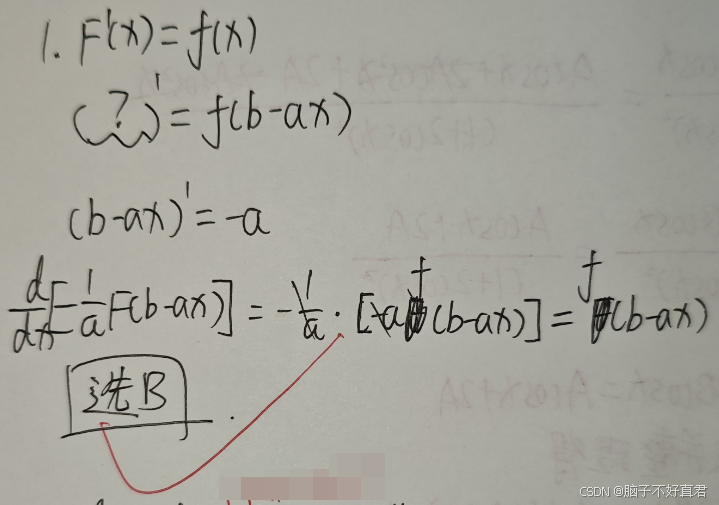 1. F'(x) = f(x)
(?)' = f(b-ax)
(b-ax)' = -a
d/dx[-1/a F(b-ax)] = -1/a · [-a f(b-ax)] = f(b-ax)
选B.
CSDN @脑子不好直君